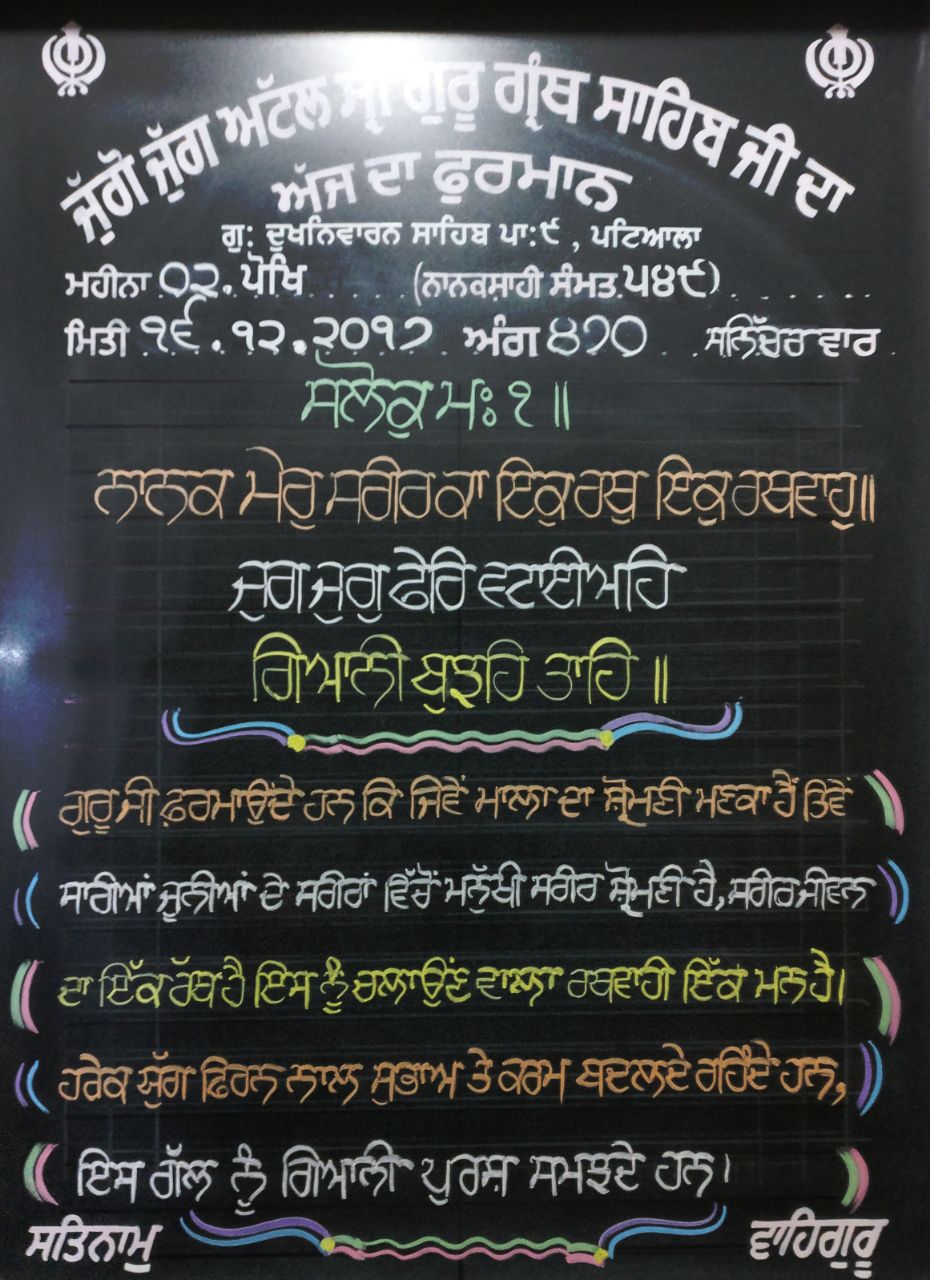 ਜੁੱਗੋ ਜੁੱਗ ਅਟੱਲ ਸ੍ਰੀ ਗੁਰੂ ਗ੍ਰੰਥ ਸਾਹਿਬ ਜੀ ਦਾ
ਅੱਜ ਦਾ ਫੁਰਮਾਨ
ਗੁ: ਦੂਖਨਿਵਾਰਨ ਸਾਹਿਬ ਪਾ:੯ , ਪਟਿਆਲਾ
ਮਹੀਨਾ ੦੨. ਪੋਖਿ (ਨਾਨਕਸ਼ਾਹੀ ਸੰਮਤ ੫੪੯)
ਮਿਤੀ ੧੬.੧੨.੨੦੧੭ ਅੰਗ ੪੭੦ ਸਨਿੱਚਰ ਵਾਰ
ਸਲੋਕੁ ਮਃ ੧ ॥
ਨਾਨਕ ਮੇਰੁ ਸਰੀਰ ਕਾ ਇਕੁ ਰਥੁ ਇਕੁ ਰਥਵਾਹੁ॥
ਜੁਗੁ ਜੁਗੁ ਫੇਰਿ ਵਟਾਈਅਹਿ
ਗਿਆਨੀ ਬੁਝਹਿ ਤਾਹਿ ॥
ਗੁਰੂ ਜੀ ਫ਼ਰਮਾਉਂਦੇ ਹਨ ਕਿ ਜਿਵੇਂ ਮਾਲਾ ਦਾ ਸ਼੍ਰੋਮਣੀ ਮਣਕਾ ਹੈਂ ਤਿਵੇਂ
ਸਾਰੀਆਂ ਜੂਨੀਆਂ ਦੇ ਸਰੀਰਾਂ ਵਿੱਚੋਂ ਮਨੁੱਖੀ ਸਰੀਰ ਸ਼੍ਰੋਮਣੀ ਹੈ, ਸਰੀਰ ਜੀਵਨ
ਦਾ ਇੱਕ ਰੱਥ ਹੈ ਇਸ ਨੂੰ ਚਲਾਉਂਣ ਵਾਲਾ ਰਥਵਾਹੀ ਇੱਕ ਮਨ ਹੈ।
ਹਰੇਕ ਯੁੱਗ ਫਿਰਨ ਨਾਲ ਸੁਭਾਅ ਤੇ ਕਰਮ ਬਦਲਦੇ ਰਹਿੰਦੇ ਹਨ,
ਇਸ ਗੱਲ ਨੂੰ ਗਿਆਨੀ ਪੁਰਸ਼ ਸਮਝਦੇ ਹਨ।
ਸਤਿਨਾਮੁ ਵਾਹਿਗੁਰੂ